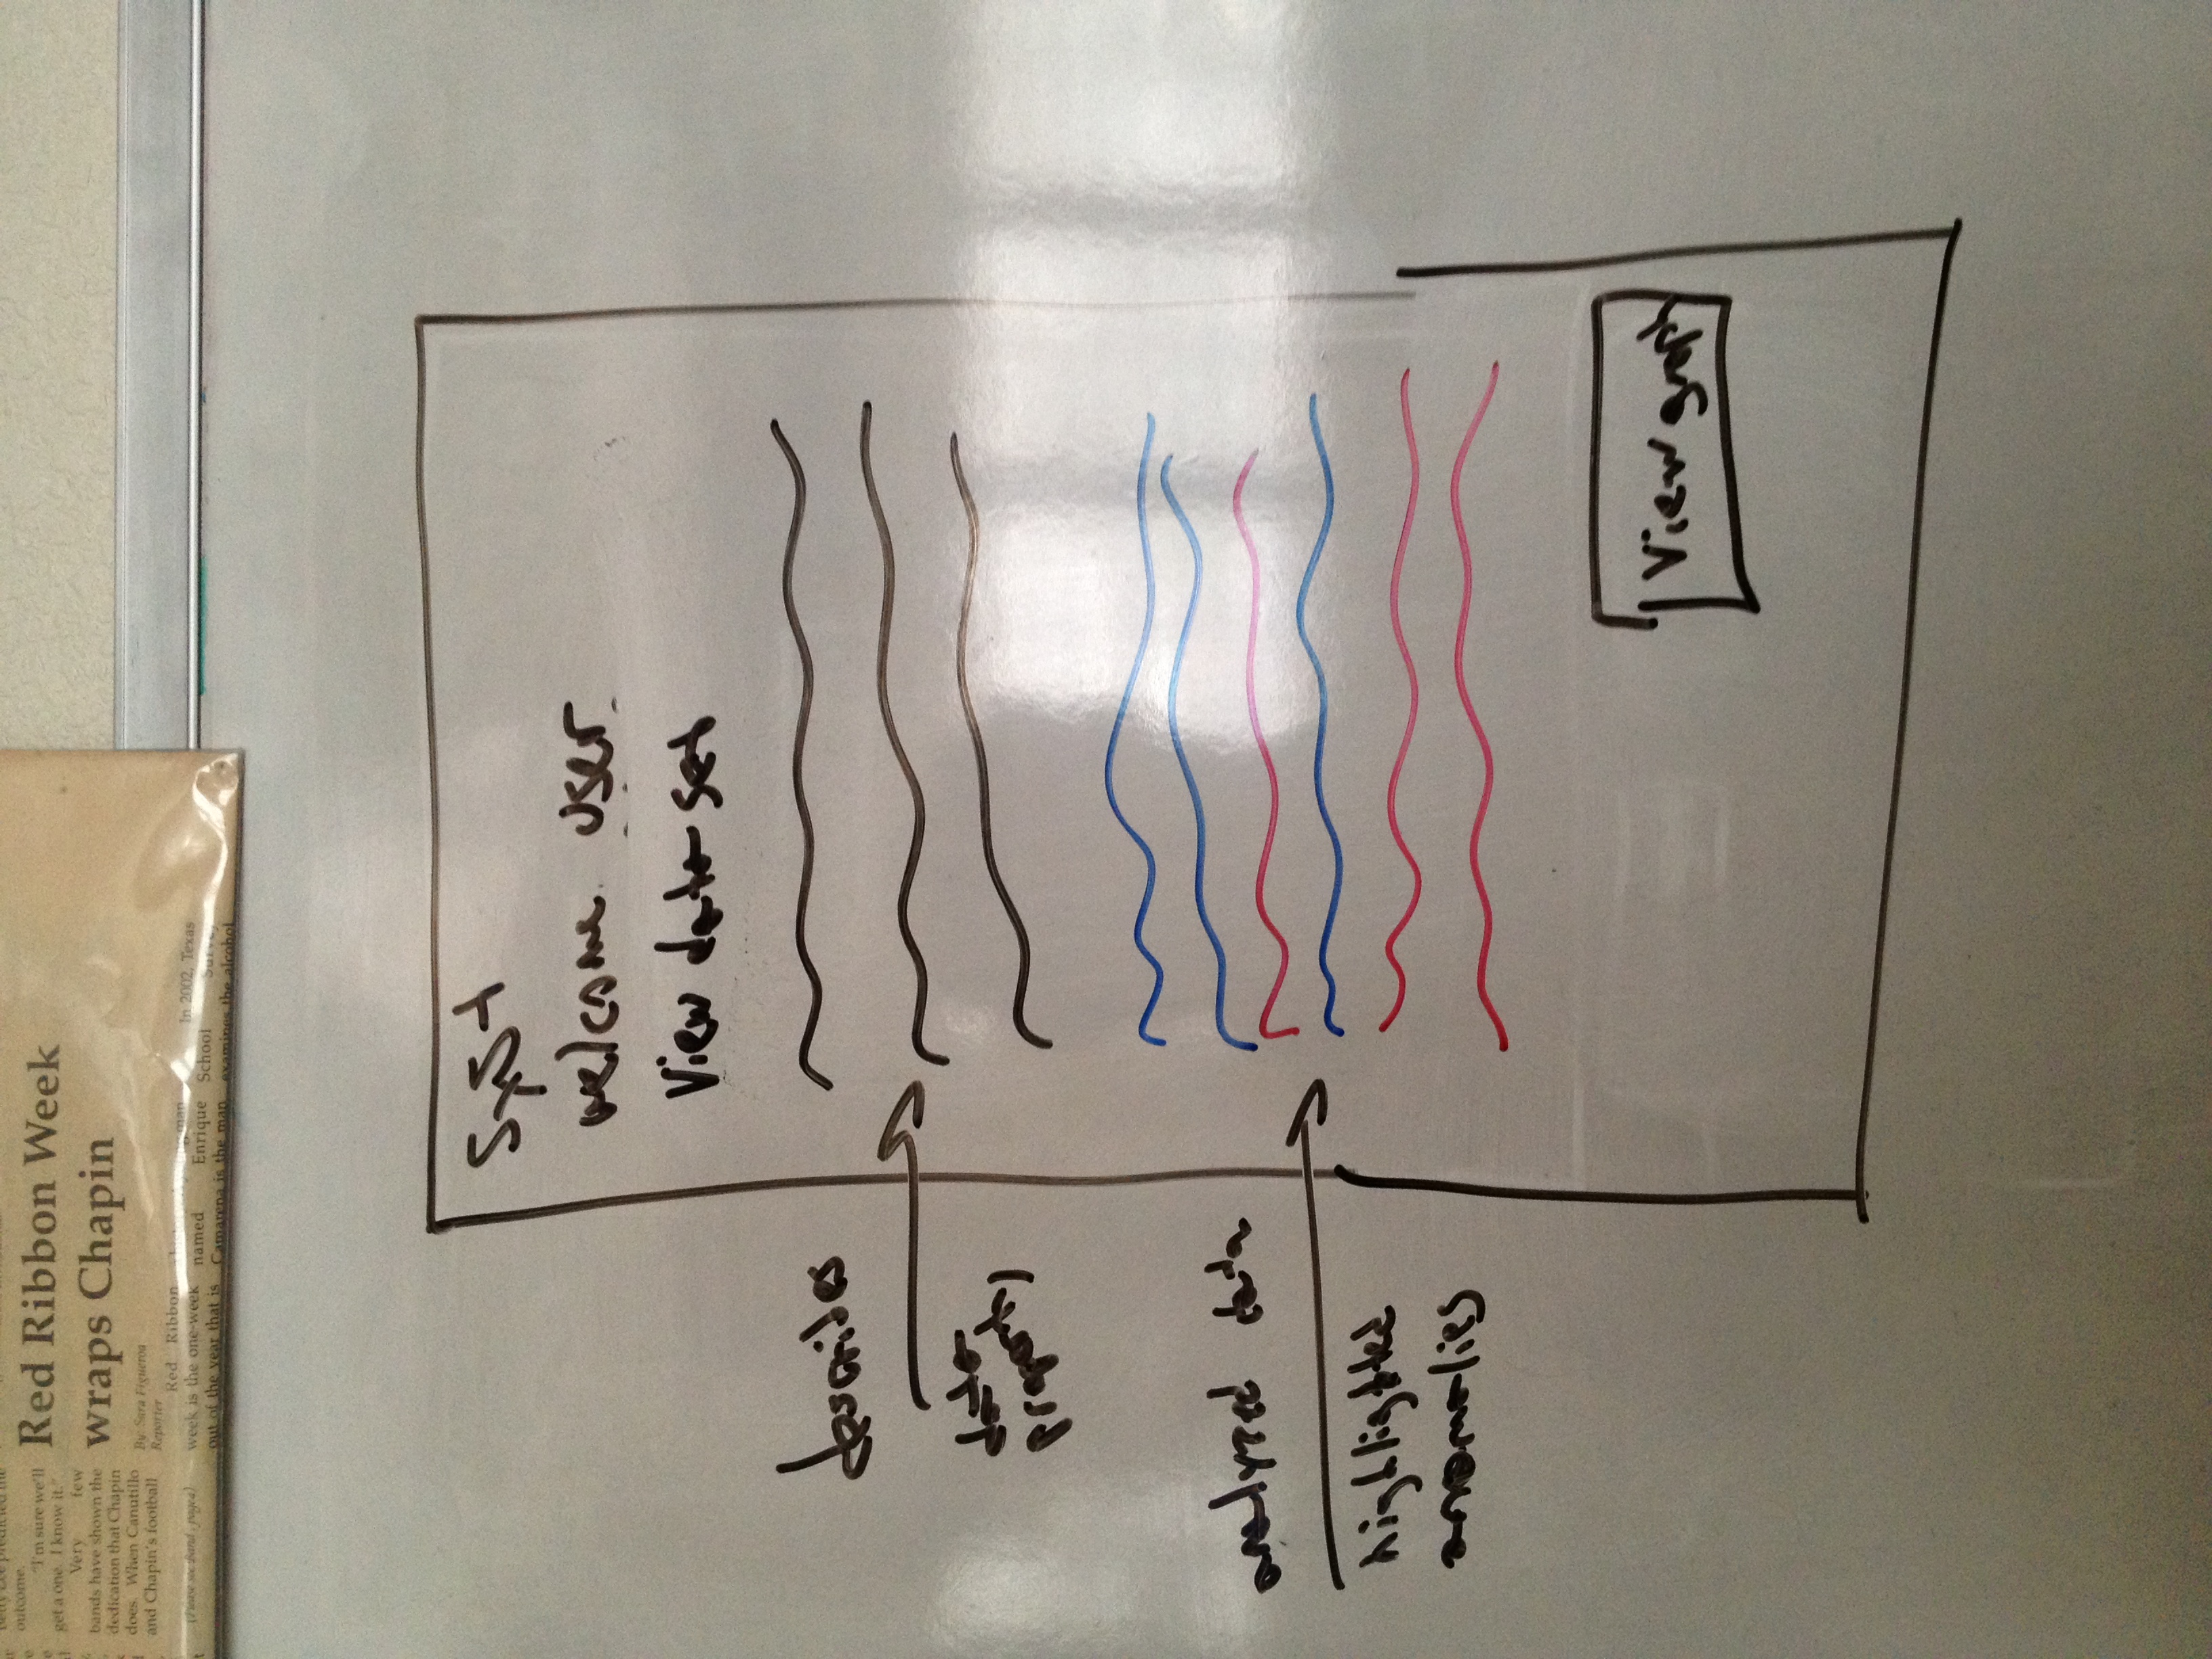 Betty Lee predicted the
outcome.
"I'm sure we'll
get a one. I know it."
Very few
bands have shown the
dedication that Chapin
does. When Canutillo
and Chapin's football
(Please see Band, page 4)
Red Ribbon Week
wraps Chapin
By: Sara Figueroa
Reporter
Red Ribbon
week is the one-week
out of the year that is
man
named Enrique
Camarena is the man
In 2002, Texas
School Survey
examines the alcohol
welcome user
View data set
describes
data
property
analyzed data
highlighted
anomalies
View graph